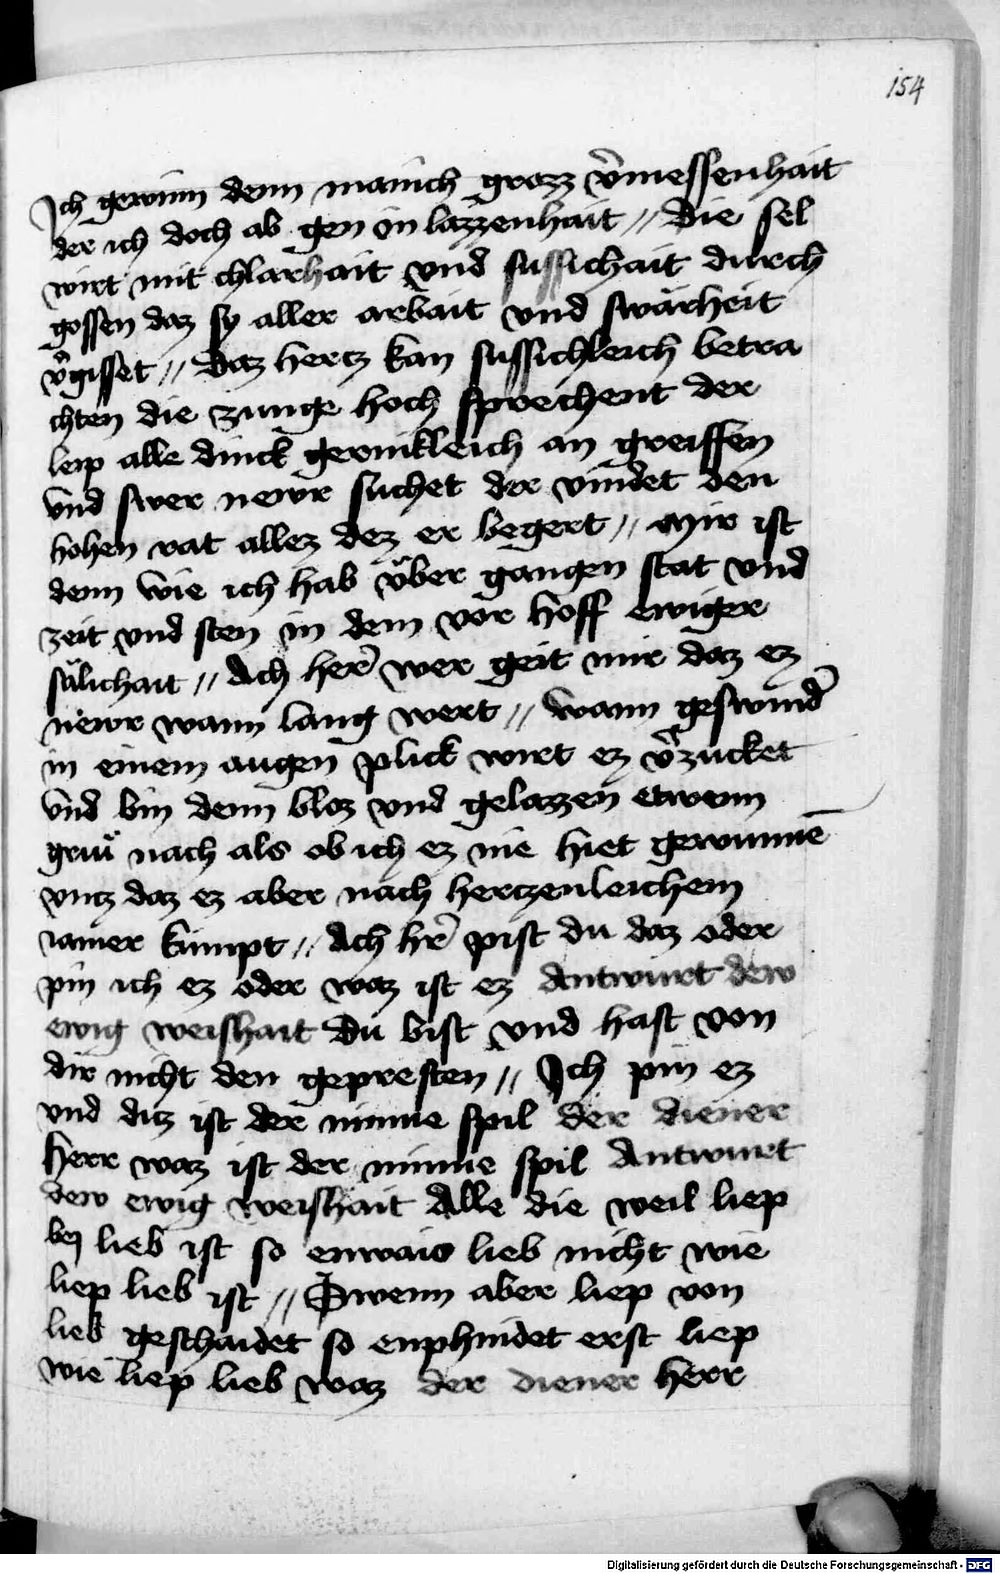 154
Ich gewinn denn manich grozz v̄messenhait
der ich doch ab gen in lazzenhait // Die sel
wirt mit chlarhait vnd sussichait durch
gossen daz sy aller arbait vnd swärheit
v̄gisset // Daz hertz kan sussichleich betra
chten die zunge hoch sprechent der
leip alle dinck gerinkleich an greiffen
vnd swer newr suchet der vindet den
hohen rat allez dez er begert // Mir ist
denn wie ich hab über gangen stat vnd
zeit vnd sten in dem vor hoff ewiger
sälichait // Ach her̄ wer geit mir daz ez
newr wann lang wert // wann geswind̄
in einem augen plick wirt ez v̄zucket
vnd bin denn bloz vnd gelazzen etwenn
nach als ob ich ez nie hiet gewunnē
vntz daz ez aber nach hertzenleichem
iamer kumpt // Ach hr̄ pist du daz oder
pin ich ez oder waz ist ez Antwurt dew
ewig weishait Du bist vnd hast von
dir nicht den gepresten // Ich pin ez
vnd ditz ist der minne spil der diener
Herr waz ist der minne spil Antwurt
dew ewig weishait Alle die weil liep
bej lieb ist so enwais lieb nicht wie
liep lieb ist // Swenn aber liep von
lieb geschaidet so enphindet erst liep
wie liep lieb waz der diener Herr
Digitalisierung gefördert durch die Deutsche Forschungsgemeinschaft - DFG